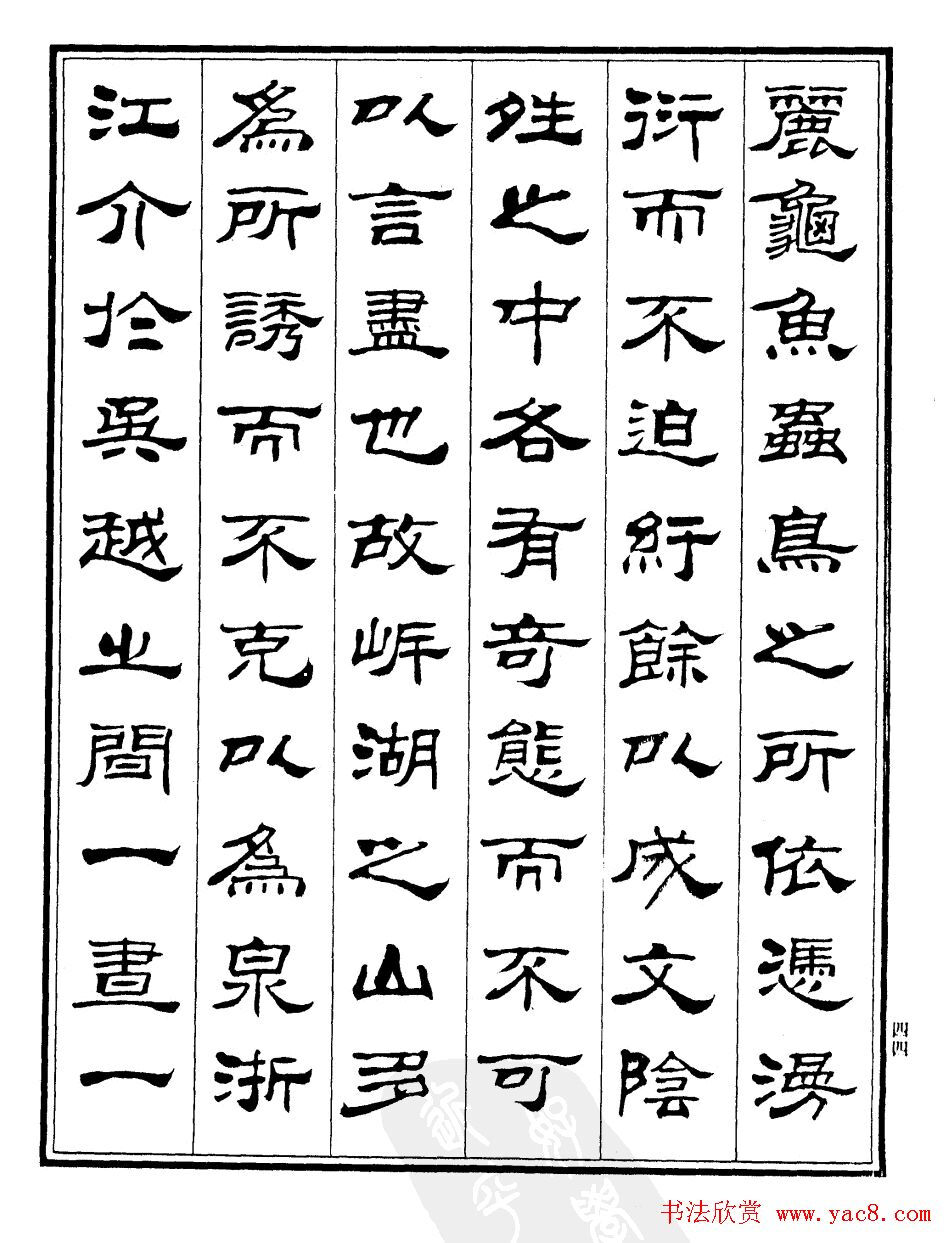 麗龜魚蟲鳥之所依憑漫
衍而不迫紆餘以成文陰
夝之中各有奇態而不可
以言盡也故㟁湖之山多
爲所誘而不克以爲泉浙
江介於吳越之間一晝一
四四
书法欣赏 www.yac8.com